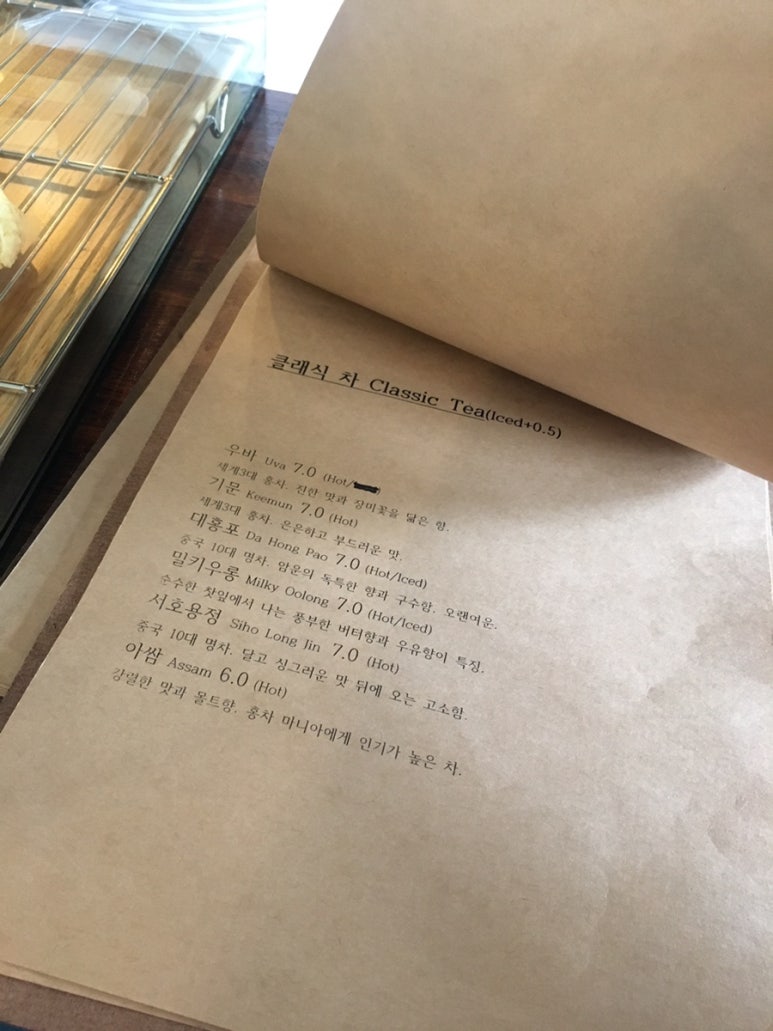 클래식 차 Classic Tea(Iced+0.5)
우바 Uva 7.0 (Hot/
세계3대 홍차. 진한 맛과 장미꽃을 닮은 향.
기문 Keemun 7.0 (Hot)
세계3대 홍차. 은은하고 부드러운 맛.
대홍포 Da Hong Pao 7.0 (Hot/Iced)
중국 10대 명차. 암운의 독특한 향과 구수함. 오랜여운.
밀키우롱 Milky Oolong 7.0 (Hot/Iced)
순수한 찻잎에서 나는 풍부한 버터향과 우유향이 특징.
서호용정 Siho Long Jin 7.0 (Hot)
중국 10대 명차. 달고 싱그러운 맛 뒤에 오는 고소함.
아쌈 Assam 6.0 (Hot)
강렬한 맛과 몰트향. 홍차 마니아에게 인기가 높은 차.